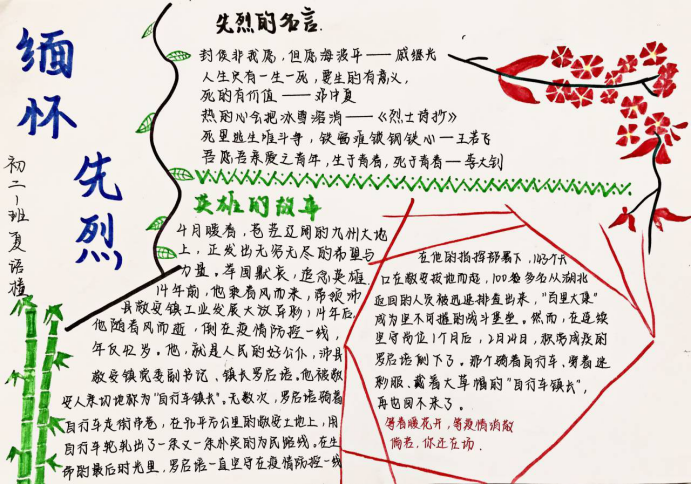 缅怀
先烈
初二1班 夏语
先烈的名言
封侯非我愿，但愿海波平——戚继光
人生只有一生一死，要生的有意义，
死的有价值——邓中夏
热的心会把冰雪溶消——《烈士诗抄》
死里逃生唯斗争，铁窗难锁钢铁心——王若飞
吾愿吾亲爱之青年，生于青春，死于青春——李大钊
英雄的故事
4月暖春，苍茫辽阔的九州大地
上，正发出无穷无尽的希望与
力量。举国默哀，追念英雄。
14年前，他乘春风而来，带领沛
县敬安镇工业发展大放异彩；14年后，
他随春风而逝，倒在疫情防控一线，
年仅42岁。他，就是人民的好公仆，沛县
敬安镇党委副书记、镇长罗启语。他被敬
安人亲切地称为"自行车镇长"。无数次，罗启语骑着
自行车走街串巷，在平方公里的敬安土地上，用
自行车轮轧出了一条又一条朴实的为民路线。在生
命的最后时光里，罗启语一直坚守在疫情防控一线
在他的指挥部署下，个关
口在敬安拔地而起，100多名从湖北
返回的人员被迅速排查出来，"百里大集"
成为坚不可摧的战斗堡垒。然而，在连续
坚守岗位1个月后，2月24日，积劳成疾的
罗启语倒下了。那个骑着自行车、穿着迷
彩服、戴着大草帽的"自行车镇长"，
再也回不来了。
等春暖花开，等疫情消散
倘若，你还在场